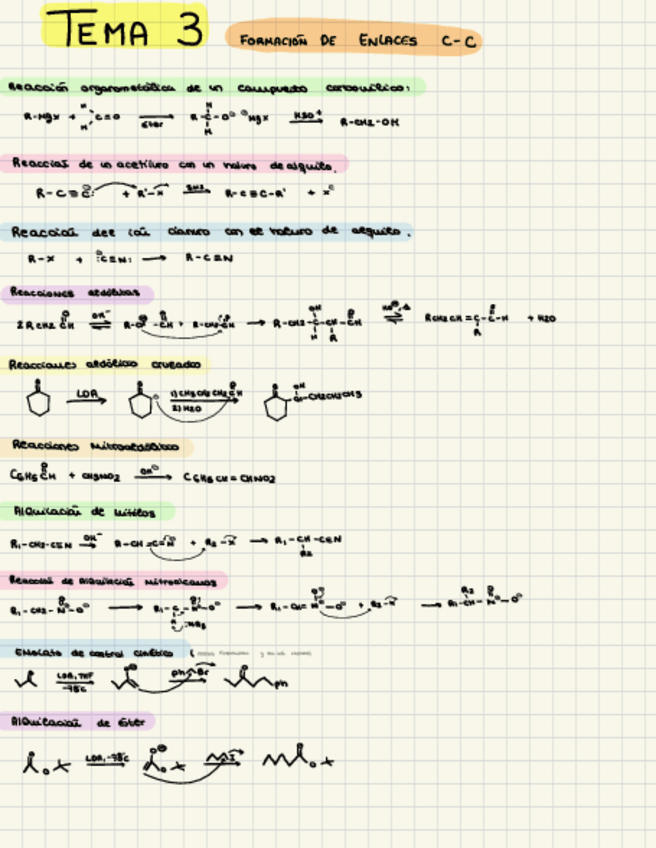 TEMA 3 FORMACIÓN DE ENLACES C-C
Reacción organometálica de un compuesto carbonílico:
R-MgX + H H C=O éter R-C-O⊖ ⊕MgX H H H3O+ R-CH2-OH
Reacción de un acetiluro con un haluro de alquilo.
R-C≡C: + R'-X SN2 R-C≡C-R' + X⊖
Reacción del ión cianuro con el haluro de alquilo.
R-X + ⊖:C≡N: → R-C≡N
Reacciones aldólicas
2RCH2CH O OH⁻ → R-CH2-C-CH-CH OH H R O RCH2CH=C-C-H R O + H2O
Reacciones aldólico cruzado
LDA 1)CH3CH2CH2CH O 2)H2O OH CH-CH2CH2CH3
Reacciones Nitroaldólico
C6H5CH O + CH3NO2 OH⊖ → C6H5CH=CHNO2
Alquilación de nitilos
R1-CH2-C≡N OH⁻ → R-CH=C=N + R2-X → R1-CH-C≡N R2
Reacción de Alquilación Nitroalcanos
R1-CH2-N-O⊖ → R1-C-N-O⊖ H :NH3 → R1-CH=N-O⊖ + R2-X → R1-CH-N-O⊖ R2
Enolato de control cinético (
LDA, THF -78ºC ph Br ph
Alquilación de éster
O LDA, -78ºC O I O